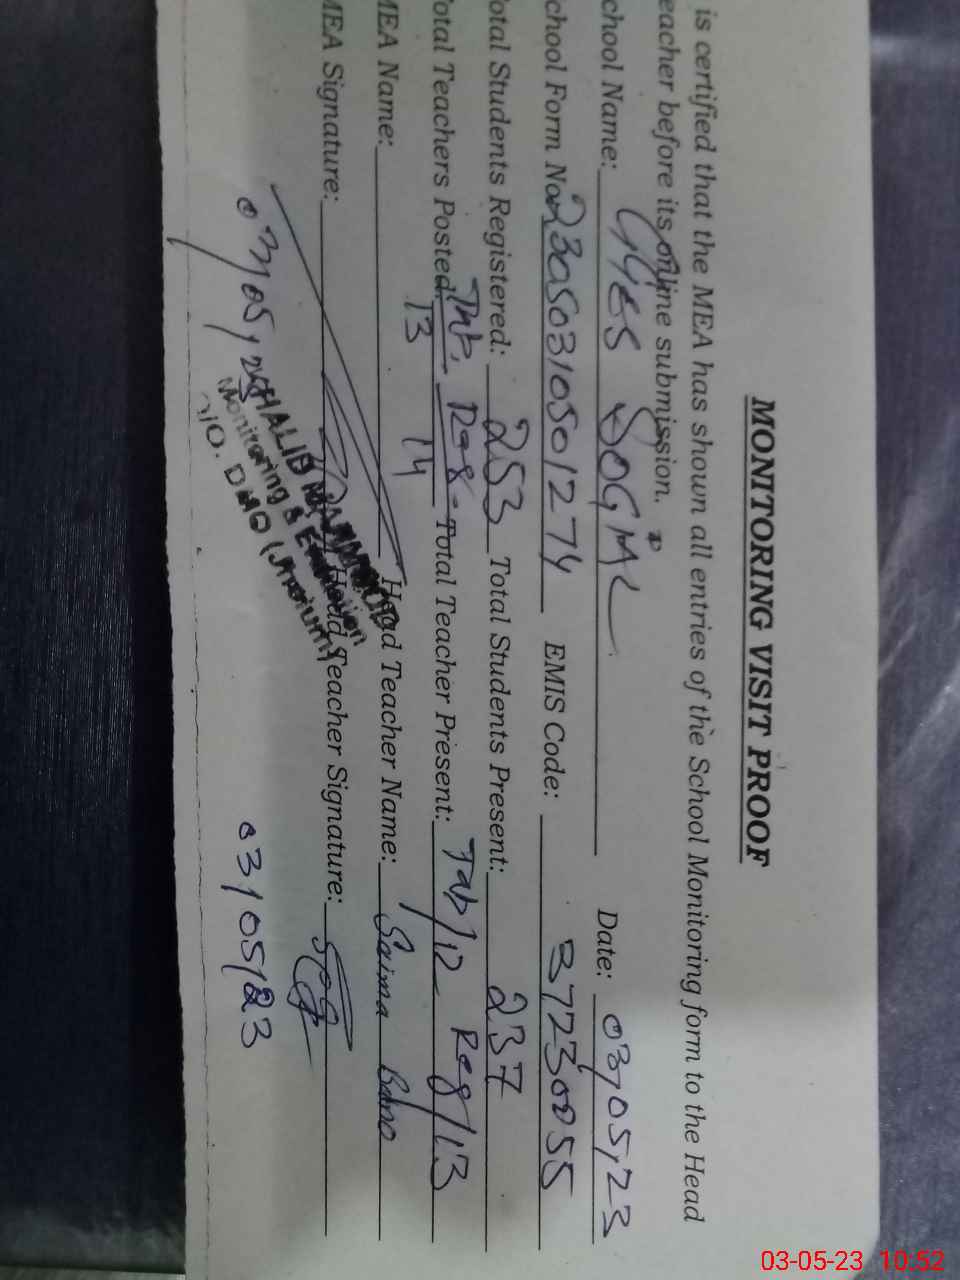 MONITORING VISIT PROOF
is certified that the MEA has shown all entries of the School Monitoring form to the Head
eacher before its online submission.
chool Name: GGES SOGMAL Date: 03/05/23
chool Form No: 23050310501274 EMIS Code: 37230055
otal Students Registered: 253 Total Students Present: 237
otal Teachers Posted: Tab. 13 Reg. 14 Total Teacher Present: Tab/12 Reg/13
MEA Name: Head Teacher Name: Saima Bano
MEA Signature: Head Teacher Signature:
03/05/23 03/05/23
KHALID MAHMOOD
Monitoring & Evaluation
O/O. DMO (Jhelum)
03-05-23 10:52